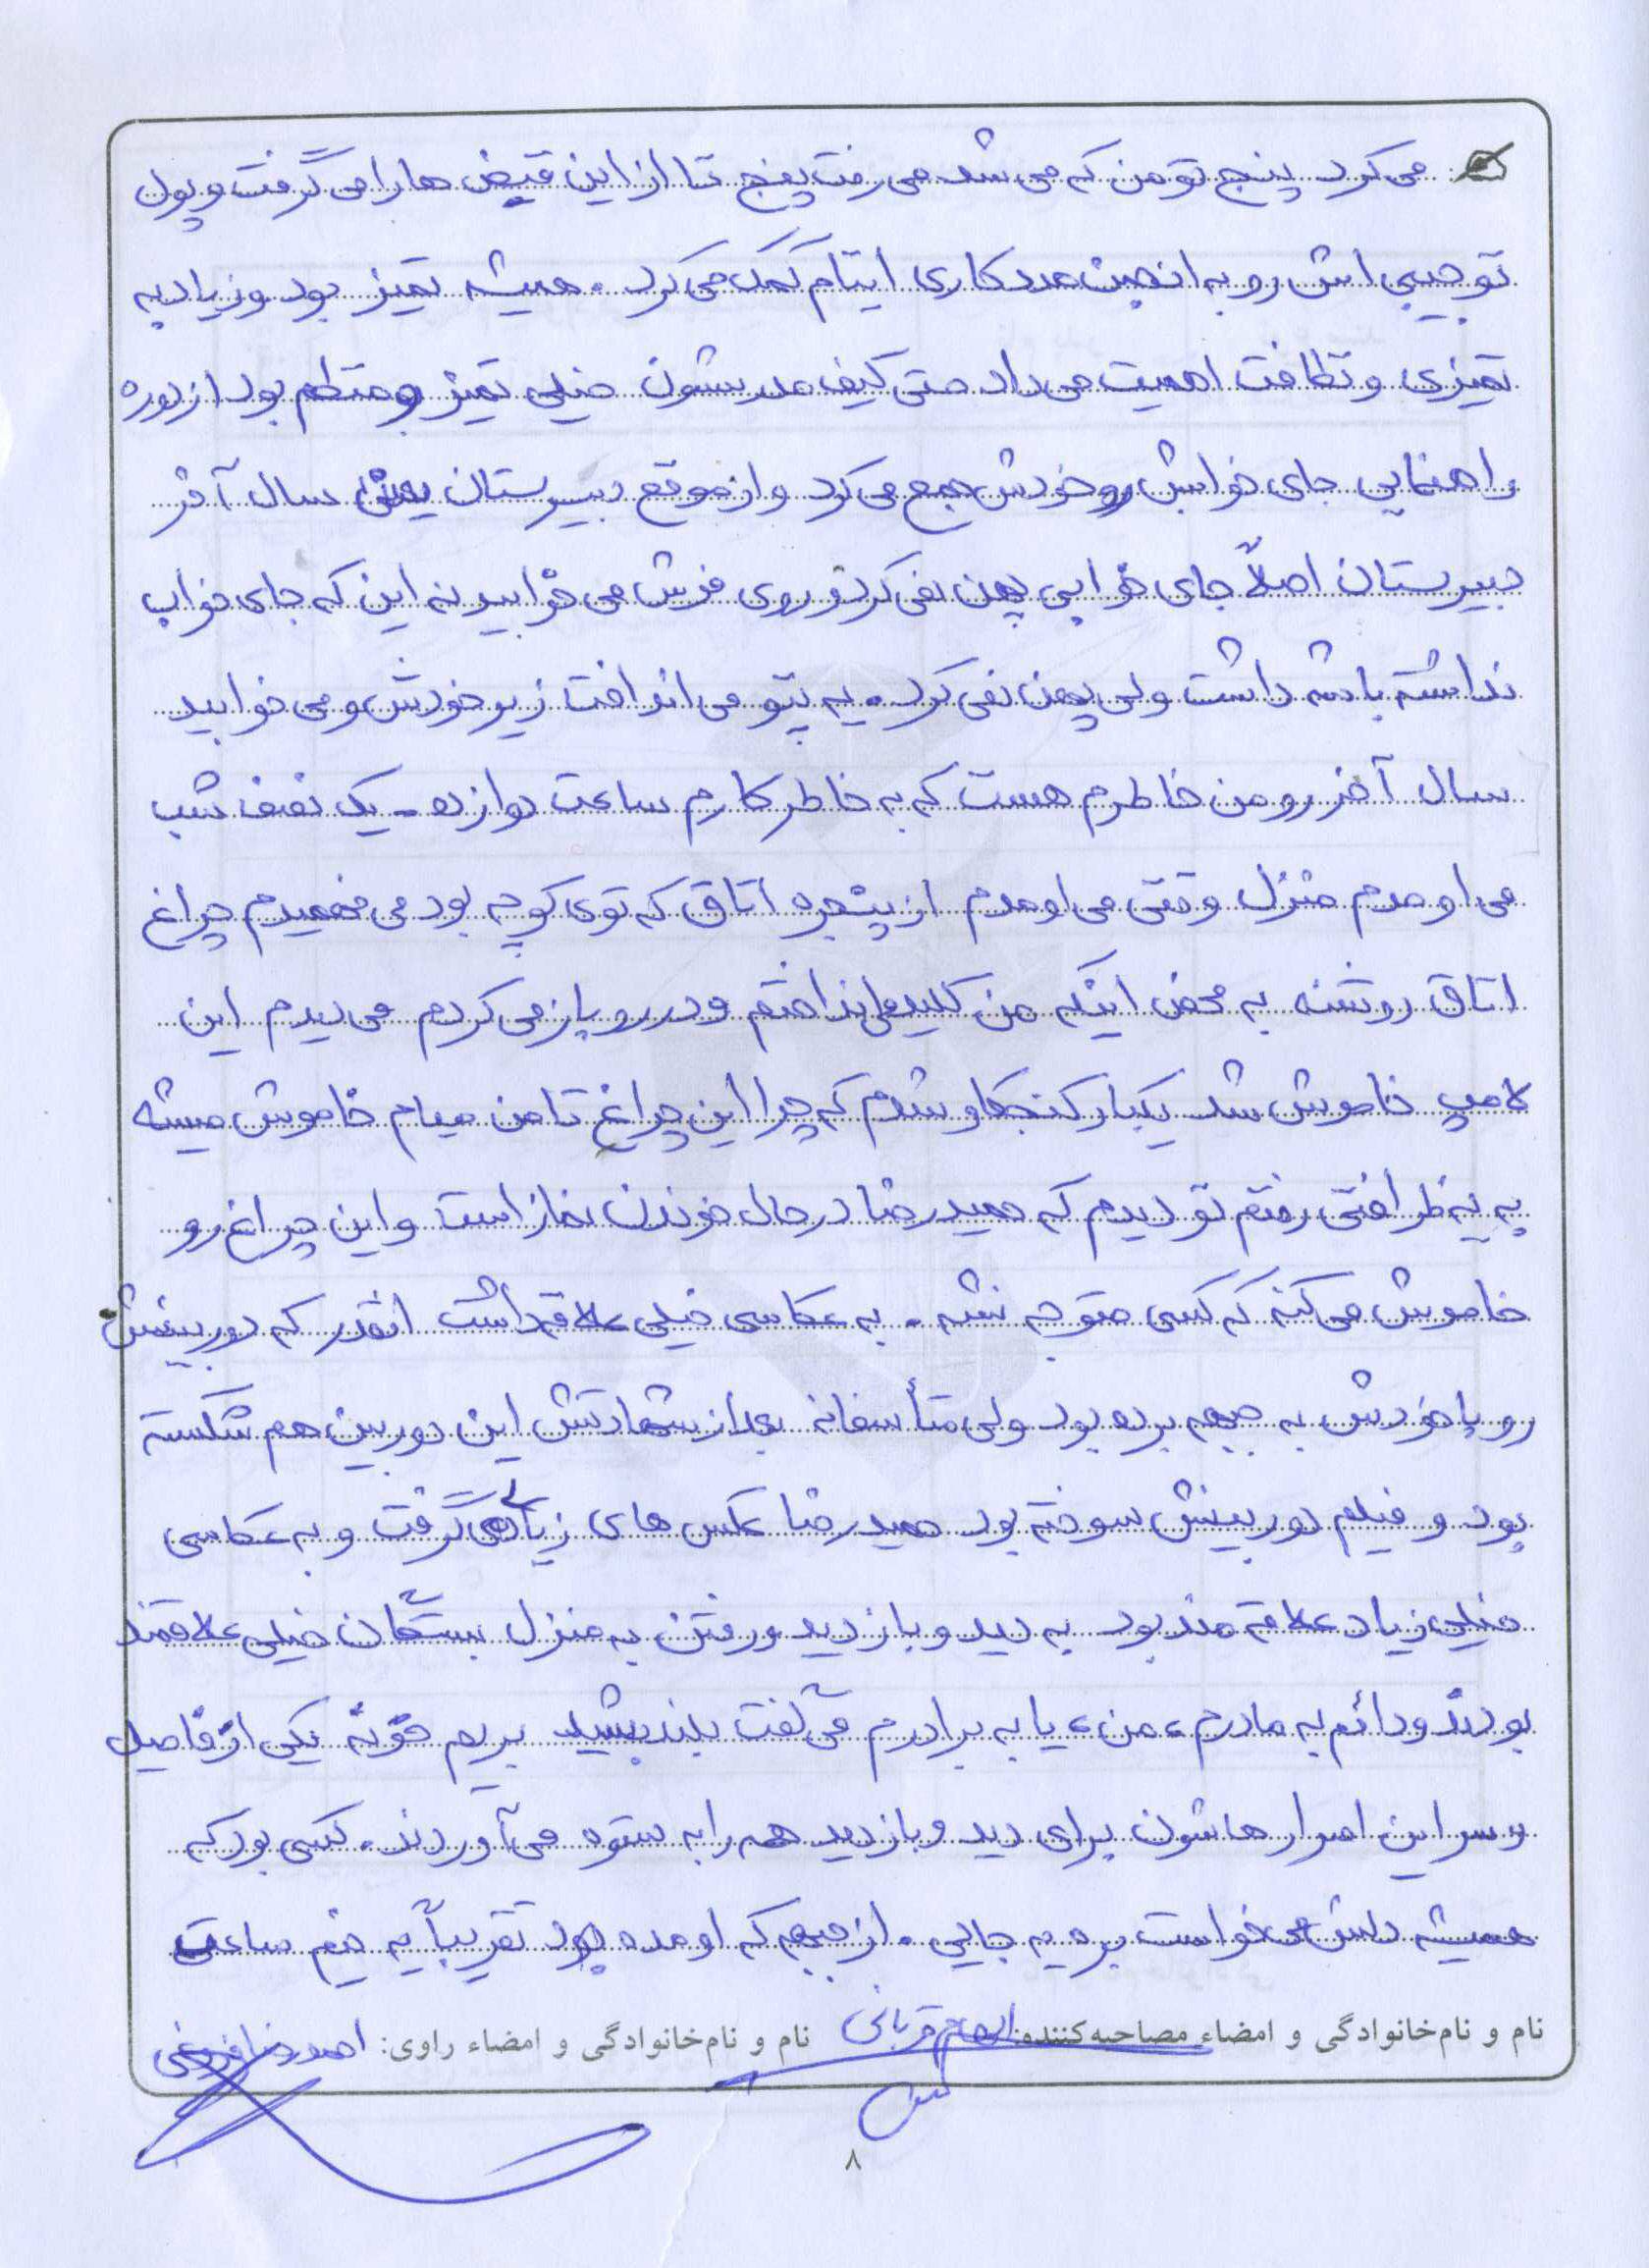 می کرد پنج تومن که می شد می رفت پنج تا از این قبض ها را می گرفت و پول
تو جیبی اش رو به انجمن مددکاری ایتام کمک می کرد. همیشه تمیز بود و زیاد به
تمیزی و نظافت اهمیت می داد حتی کیف مدرسشون خیلی تمیز و منظم بود از دوره
راهنمایی جای خوابش رو خودش جمع می کرد و از موقع دبیرستان یعنی سال آخر
دبیرستان اصلاً جای خوابی پهن نمی کرد و روی فرش می خوابید نه این که جای خواب
نداشته باشه داشت ولی پهن نمی کرد. یه پتو می انداخت زیر خودش و می خوابید
سال آخر رو من خاطرم هست که به خاطر کارم ساعت دوازده - یک نصف شب
می اومدم منزل وقتی می اومدم از پنجره اتاق که توی کوچه بود می فهمیدم چراغ
اتاق روشنه به محض اینکه من کلید می انداختم و در رو باز می کردم می دیدم این
لامپ خاموش شد یکبار کنجکاو شدم که چرا این چراغ تا من میام خاموش میشه
به یه ظرافتی رفتم تو دیدم که حمیدرضا در حال خوندن نماز است و این چراغ رو
خاموش می کنه که کسی متوجه نشه. به عکاسی خیلی علاقه داشت انقدر که دوربینش
رو با خودش به جبهه برده بود ولی متأسفانه بعد از شهادتش این دوربین هم شکسته
بود و فیلم دوربینش سوخته بود حمیدرضا عکس های زیادی می گرفت و به عکاسی
خیلی زیاد علاقه مند بود به دید و بازدید و رفتن به منزل بستگان خیلی علاقمند
بودند و دائم به مادرم، من، یا به برادرم می گفت بلند بشید بریم خونه یکی از فامیل
و سر این اصرار هاشون برای دید و بازدید همه را به ستوه می آوردند. کسی بود که
همیشه دلش می خواست بره یه جایی. از جبهه که اومده بود تقریباً یه نیم ساعتی
نام و نام‌خانوادگی و امضاء مصاحبه‌کننده: الهام قربانی نام و نام‌خانوادگی و امضاء راوی: احمدرضا
۸